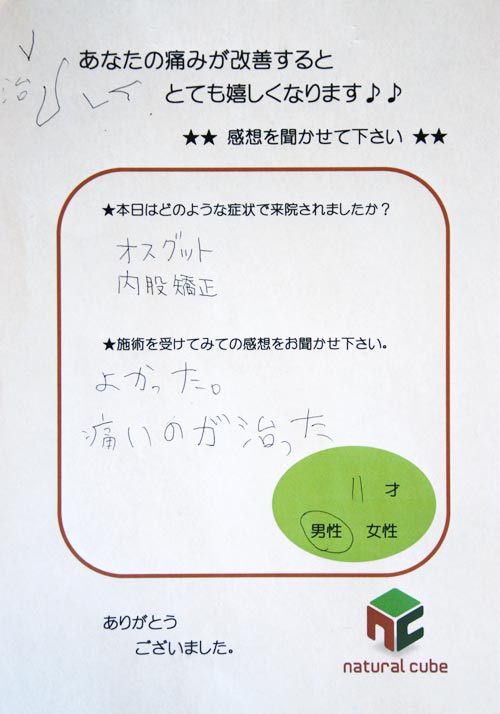 あなたの痛みが改善すると
とても嬉しくなります♪♪
治
★★ 感想を聞かせて下さい ★★
★本日はどのような症状で来院されましたか？
オスグット
内股矯正
★施術を受けてみての感想をお聞かせ下さい。
よかった。
痛いのが治った
11 才
男性 女性
ありがとう
ございました。
nc
natural cube